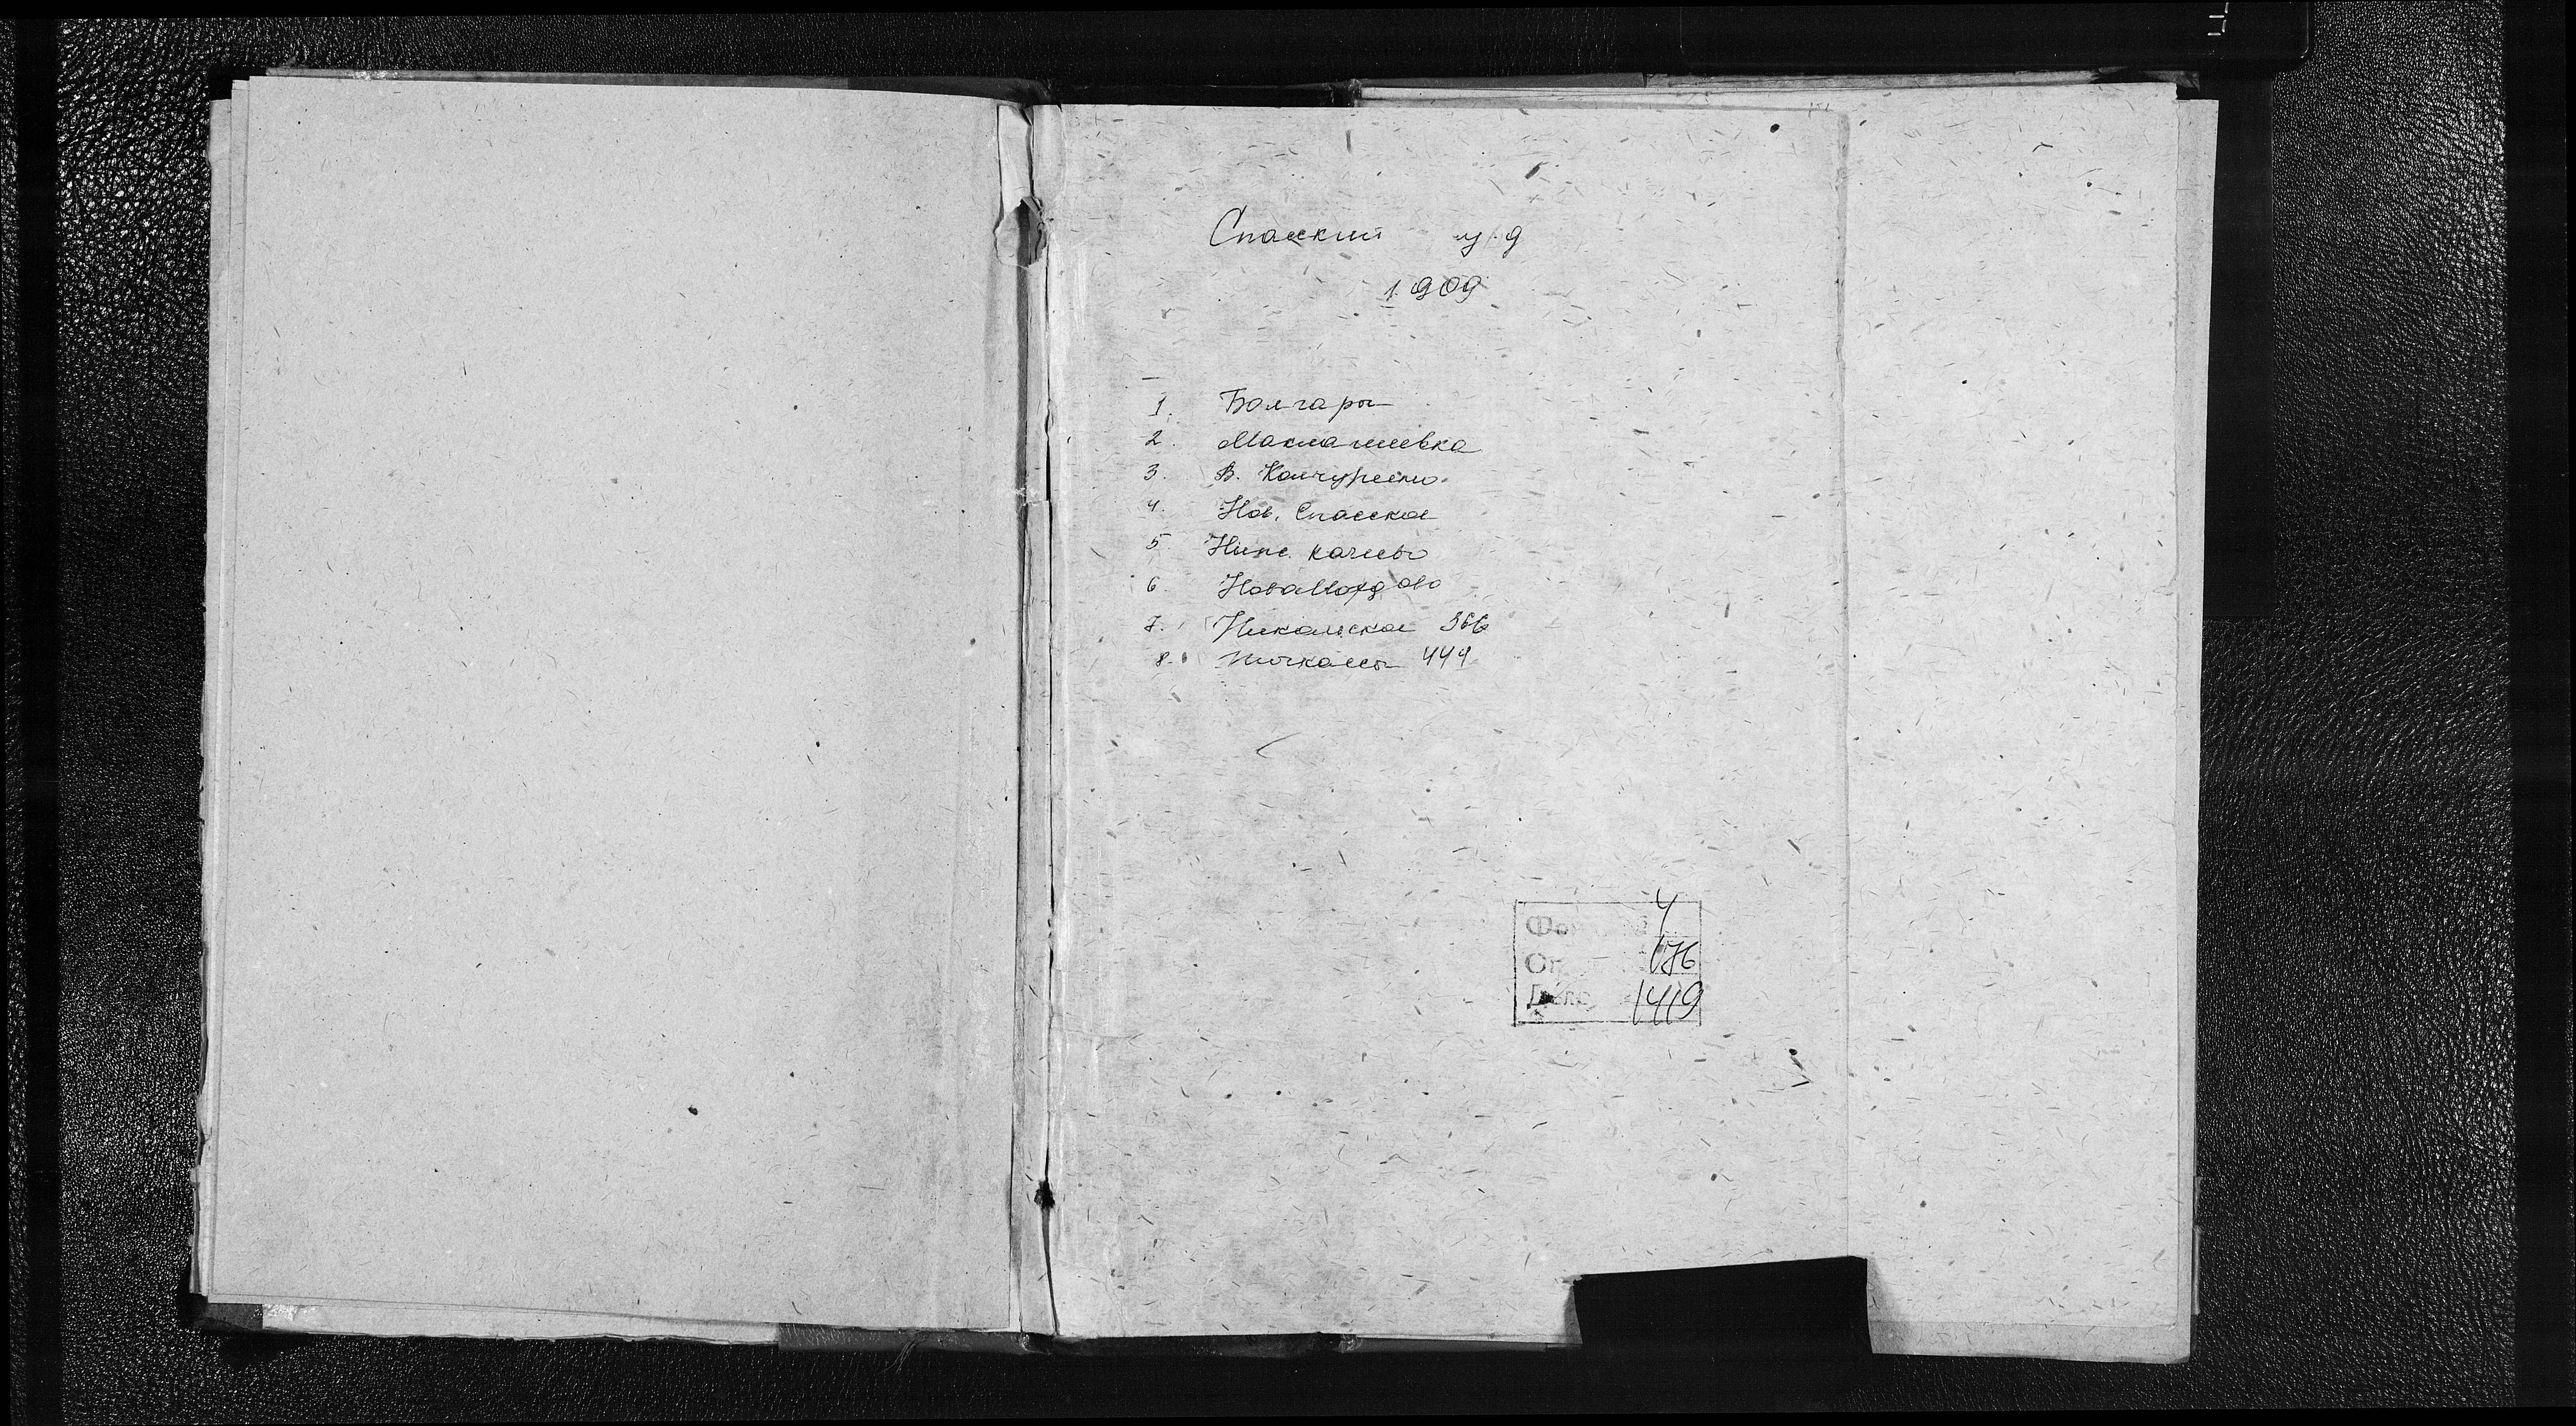 Спасский у.д
1909
1. Болгары
2. Маклашевка
3. В. Колчурино
4. Нов. Спасское
5. Ниж. Качеево
6. НовоМордово
7. Никольское 366
8. Тюгкасы 444
Фонд № 4
Оп. 176
Дело 1419